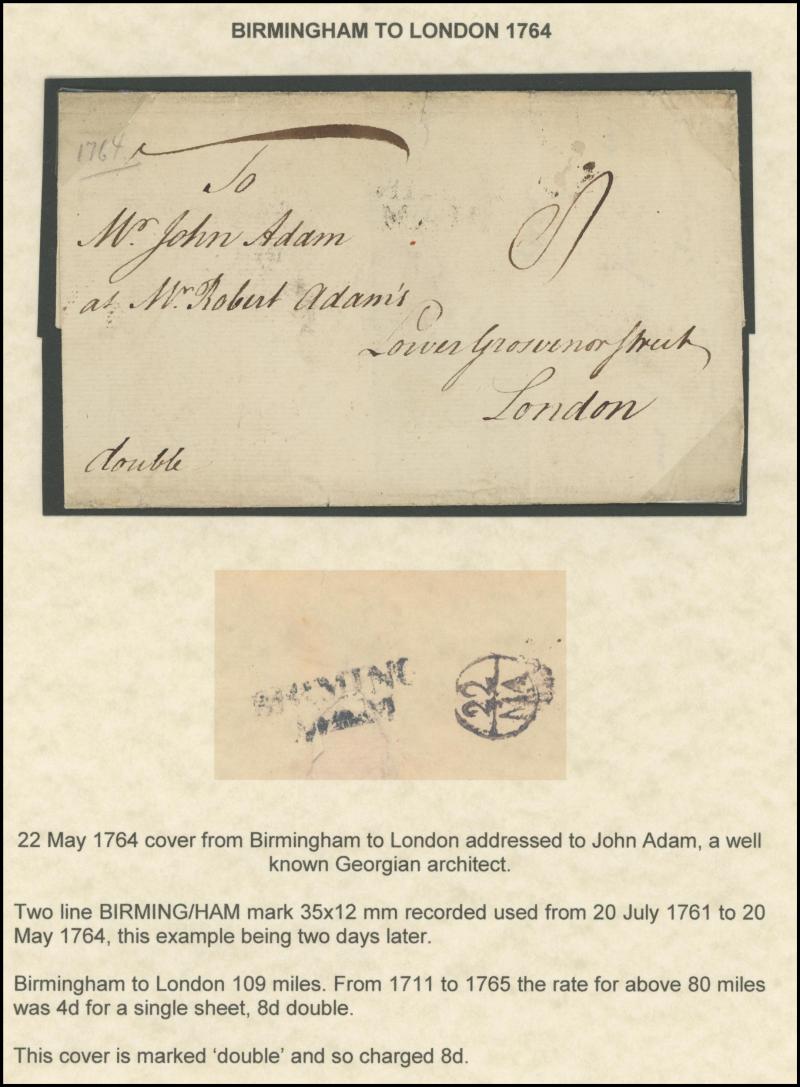 BIRMINGHAM TO LONDON 1764
1764
To
Mr John Adam
at Mr Robert Adam's
Lower Grosvenor Street
London
double
BIRMING
HAM
22
MA
22 May 1764 cover from Birmingham to London addressed to John Adam, a well
known Georgian architect.
Two line BIRMING/HAM mark 35x12 mm recorded used from 20 July 1761 to 20
May 1764, this example being two days later.
Birmingham to London 109 miles. From 1711 to 1765 the rate for above 80 miles
was 4d for a single sheet, 8d double.
This cover is marked ‘double’ and so charged 8d.